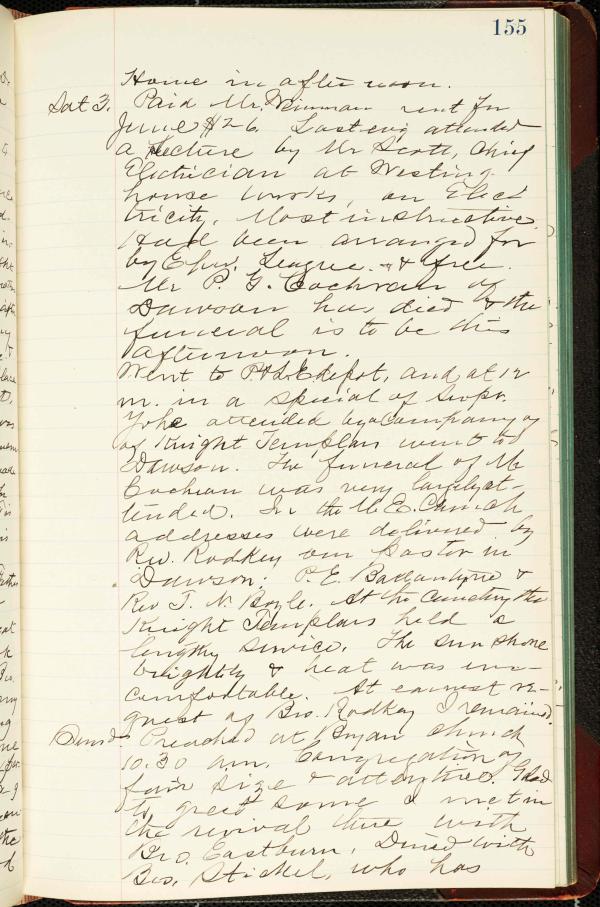 155
Home in afternoon.
Sat 3. Paid Mr. Weinman rent for
June $26. Last evg attended
a Lecture by Mr Scott, Chief
Electrician at Westing-
house works, on Elect
tricity, Most instructive.
Had been arranged for
by Epw. League. & free.
Mr P. G. Cochran of
Dawson has died & the
funeral is to be this
afternoon.
Went to P&L.E depot, and at 12
m. in a special of Supr.
Yohe attended by a company of
of Knight Templars went to
Dawson. The funeral of Mr
Cochran was very largely at-
tended. In the M.E. Church
addresses were delivered by
Rev. Rodkey our pastor in
Dawson; P. E. Ballantyne &
Rev T. N. Boyle. At the Cemetery the
Knight Templars held a
lengthy service. The sun shone
brightly & heat was un-
comfortable. At earnest re-
quest of Bro. Rodkey I remained.
Preached at Bryan Church
10.30 a.m. Congregation of
fair size & attentive. Glad
to greet some I met in
the revival there with
Bro. Eastburn, Dined with
Bro. Stickel, who has